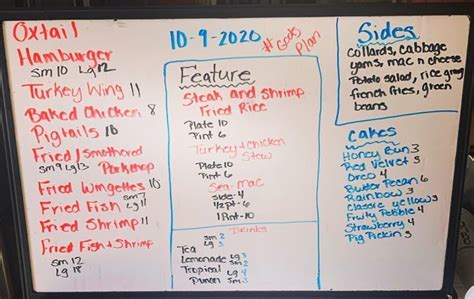 Oxtail
Hamburger
Sm 10 Lg 12
Turkey Wing 11
Baked Chicken 8
Pigtails 10
Fried / Smothered
Sm 9 Lg 13 Porkchop
Fried Wingettes 10
Fried Fish Sm 7 Lg 11
Fried Shrimp 11
Fried Fish & Shrimp
Sm 12
Lg 18
10-9-2020
#Gods Plan
Feature
Steak and Shrimp
Fried Rice
Plate 10
Pint 6
Turkey & Chicken
Stew
Plate 10
Pint 6
Sea-mac
Side-4
1/2 pt-6
1 Pint-10
Drinks
Tea Sm 2 Lg 3
Lemonade Lg 3
Tropical Lg 4
Sides
Collards, Cabbage
yams, mac n cheese
Potato salad, rice
french fries, green
beans
Cakes
Honey Bun 3
Red Velvet 3
Oreo 4
Butter Pecan 6
Rainbow 3
Classic Yellow 3
Fruity Pebble 4
Strawberry 4
Pig Pickin 5